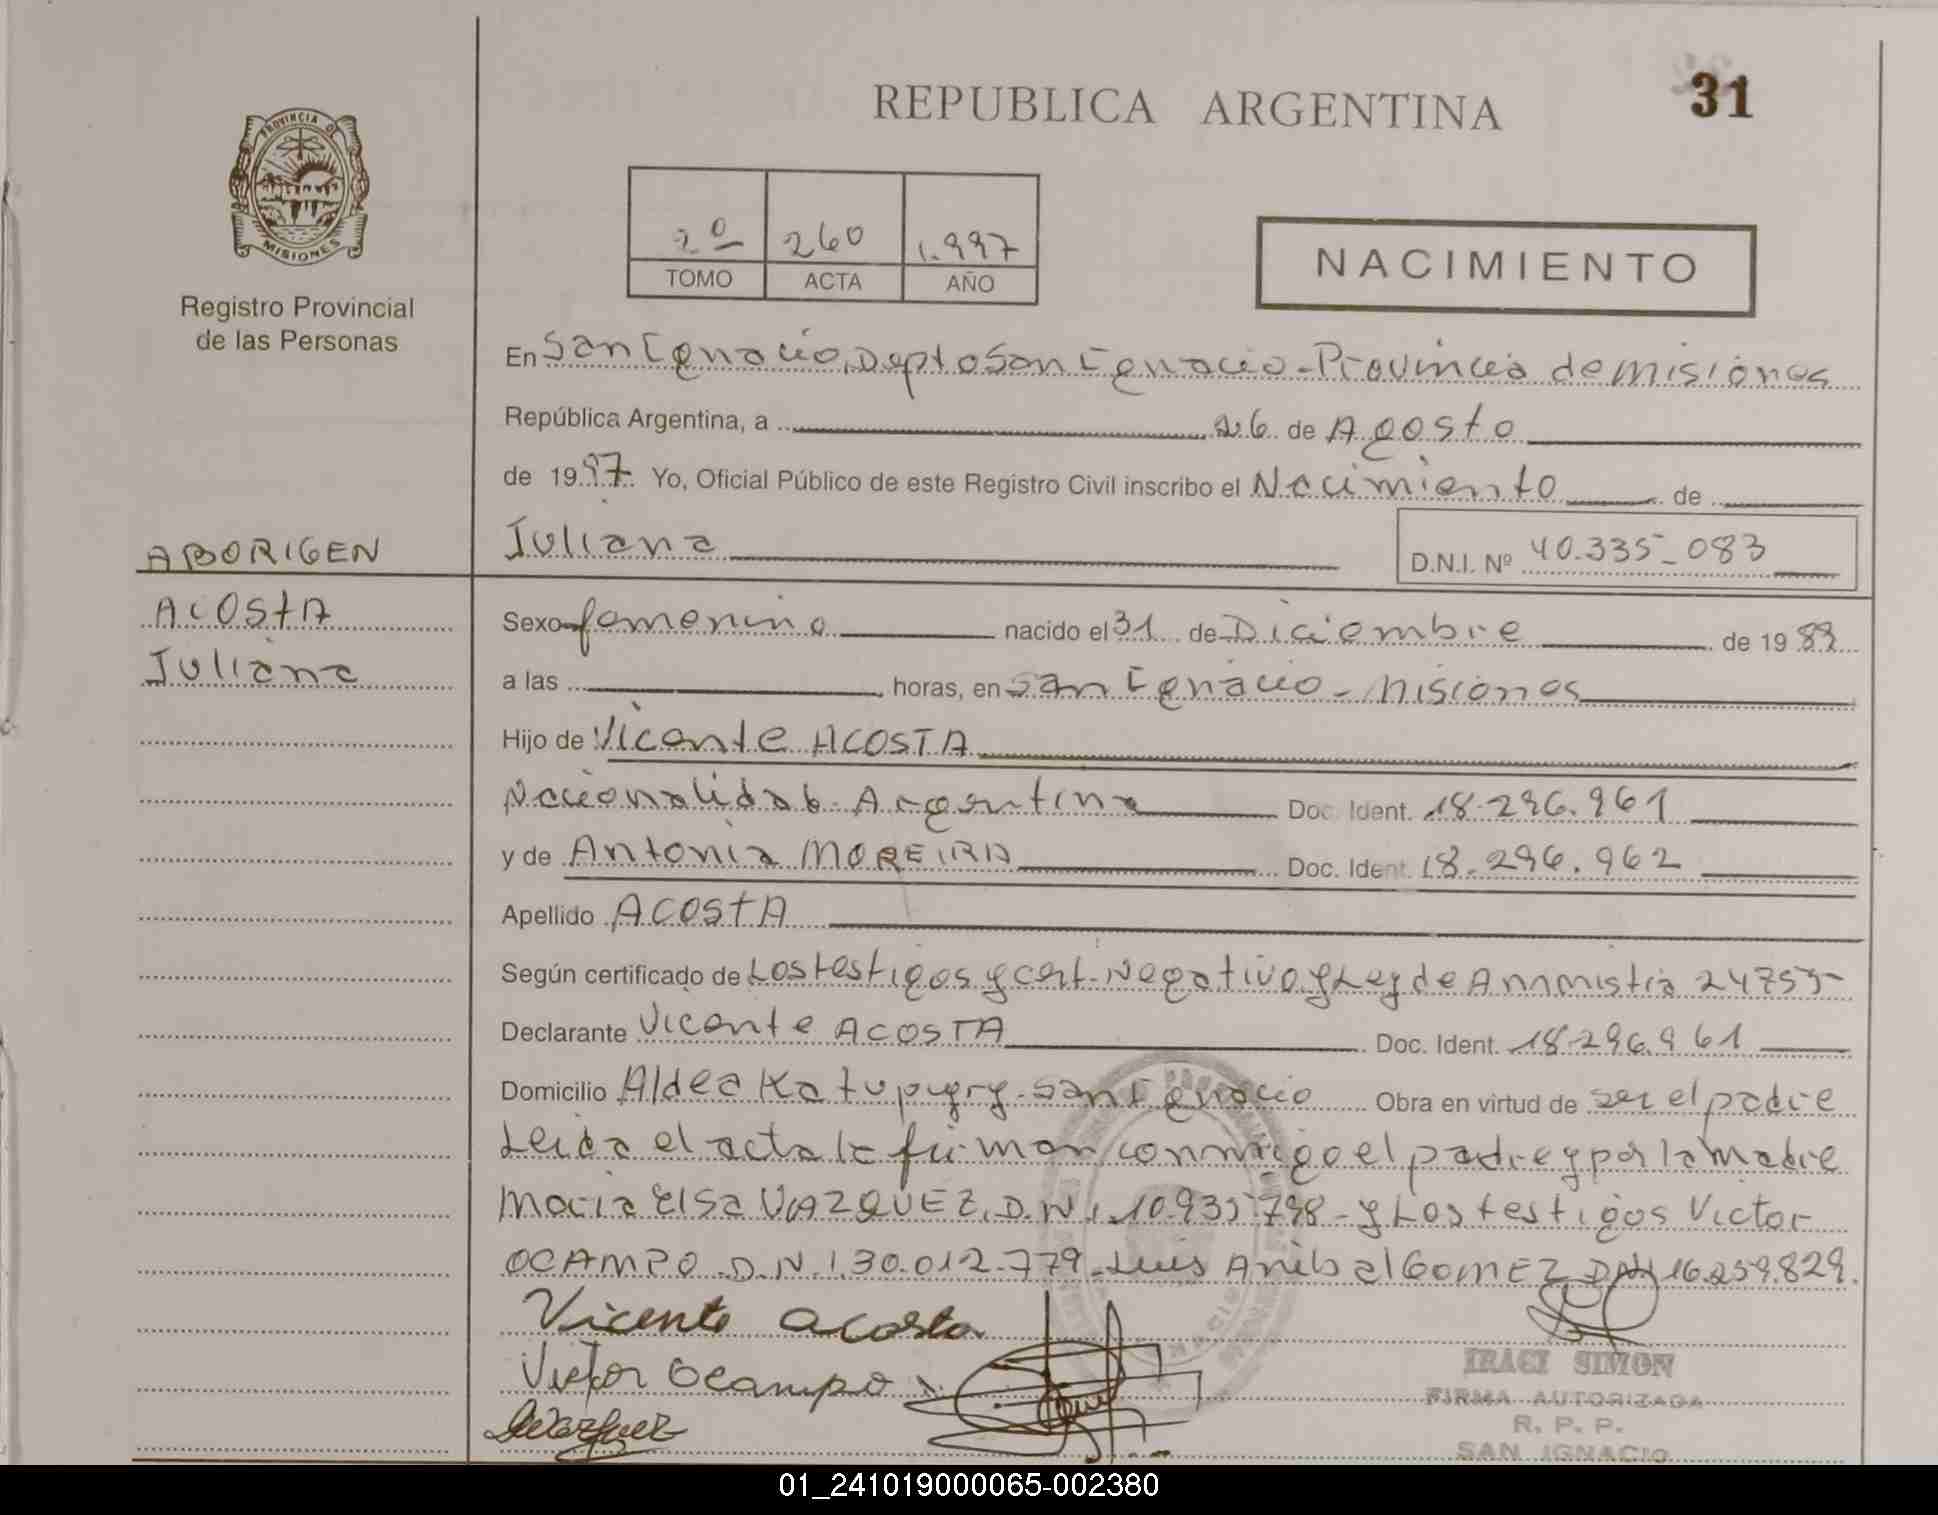 REPUBLICA ARGENTINA
31
PROVINCIA DE
MISIONES
Registro Provincial
de las Personas
2º 260 1.997
TOMO ACTA AÑO
NACIMIENTO
En San Ignacio, Depto San Ignacio - Provincia de Misiones
República Argentina, a 26 de Agosto
de 1997 Yo, Oficial Público de este Registro Civil inscribo el Nacimiento de
Juliana
D.N.I. Nº 40.335_083
ABORIGEN
ACOSTA
Juliana
Sexo femenino nacido el 31 de Diciembre de 1989
a las horas, en San Ignacio - Misiones
Hijo de Vicente ACOSTA
Nacionalidad Argentina Doc. Ident. 18.296.961
y de Antonia MOREIRA Doc. Ident. 18.296.962
Apellido ACOSTA
Según certificado de Los testigos y cert. Negativo y Ley de Ammistia 24755
Declarante Vicente ACOSTA Doc. Ident. 18.296.961
Domicilio Aldea Katupyry - San Ignacio Obra en virtud de ser el padre
Leida el acta la firman conmigo el padre y por la madre
Maria Elsa VAZQUEZ, D.N.I. 10.935.798 - y Los testigos Victor
OCAMPO D.N.I. 30.012.779 - Luis Anibal GOMEZ DNI 16.259.829.
Vicente Acosta
Victor Ocampo
IRACI SIMON
FIRMA AUTORIZADA
R. P. P.
SAN IGNACIO
01_241019000065-002380